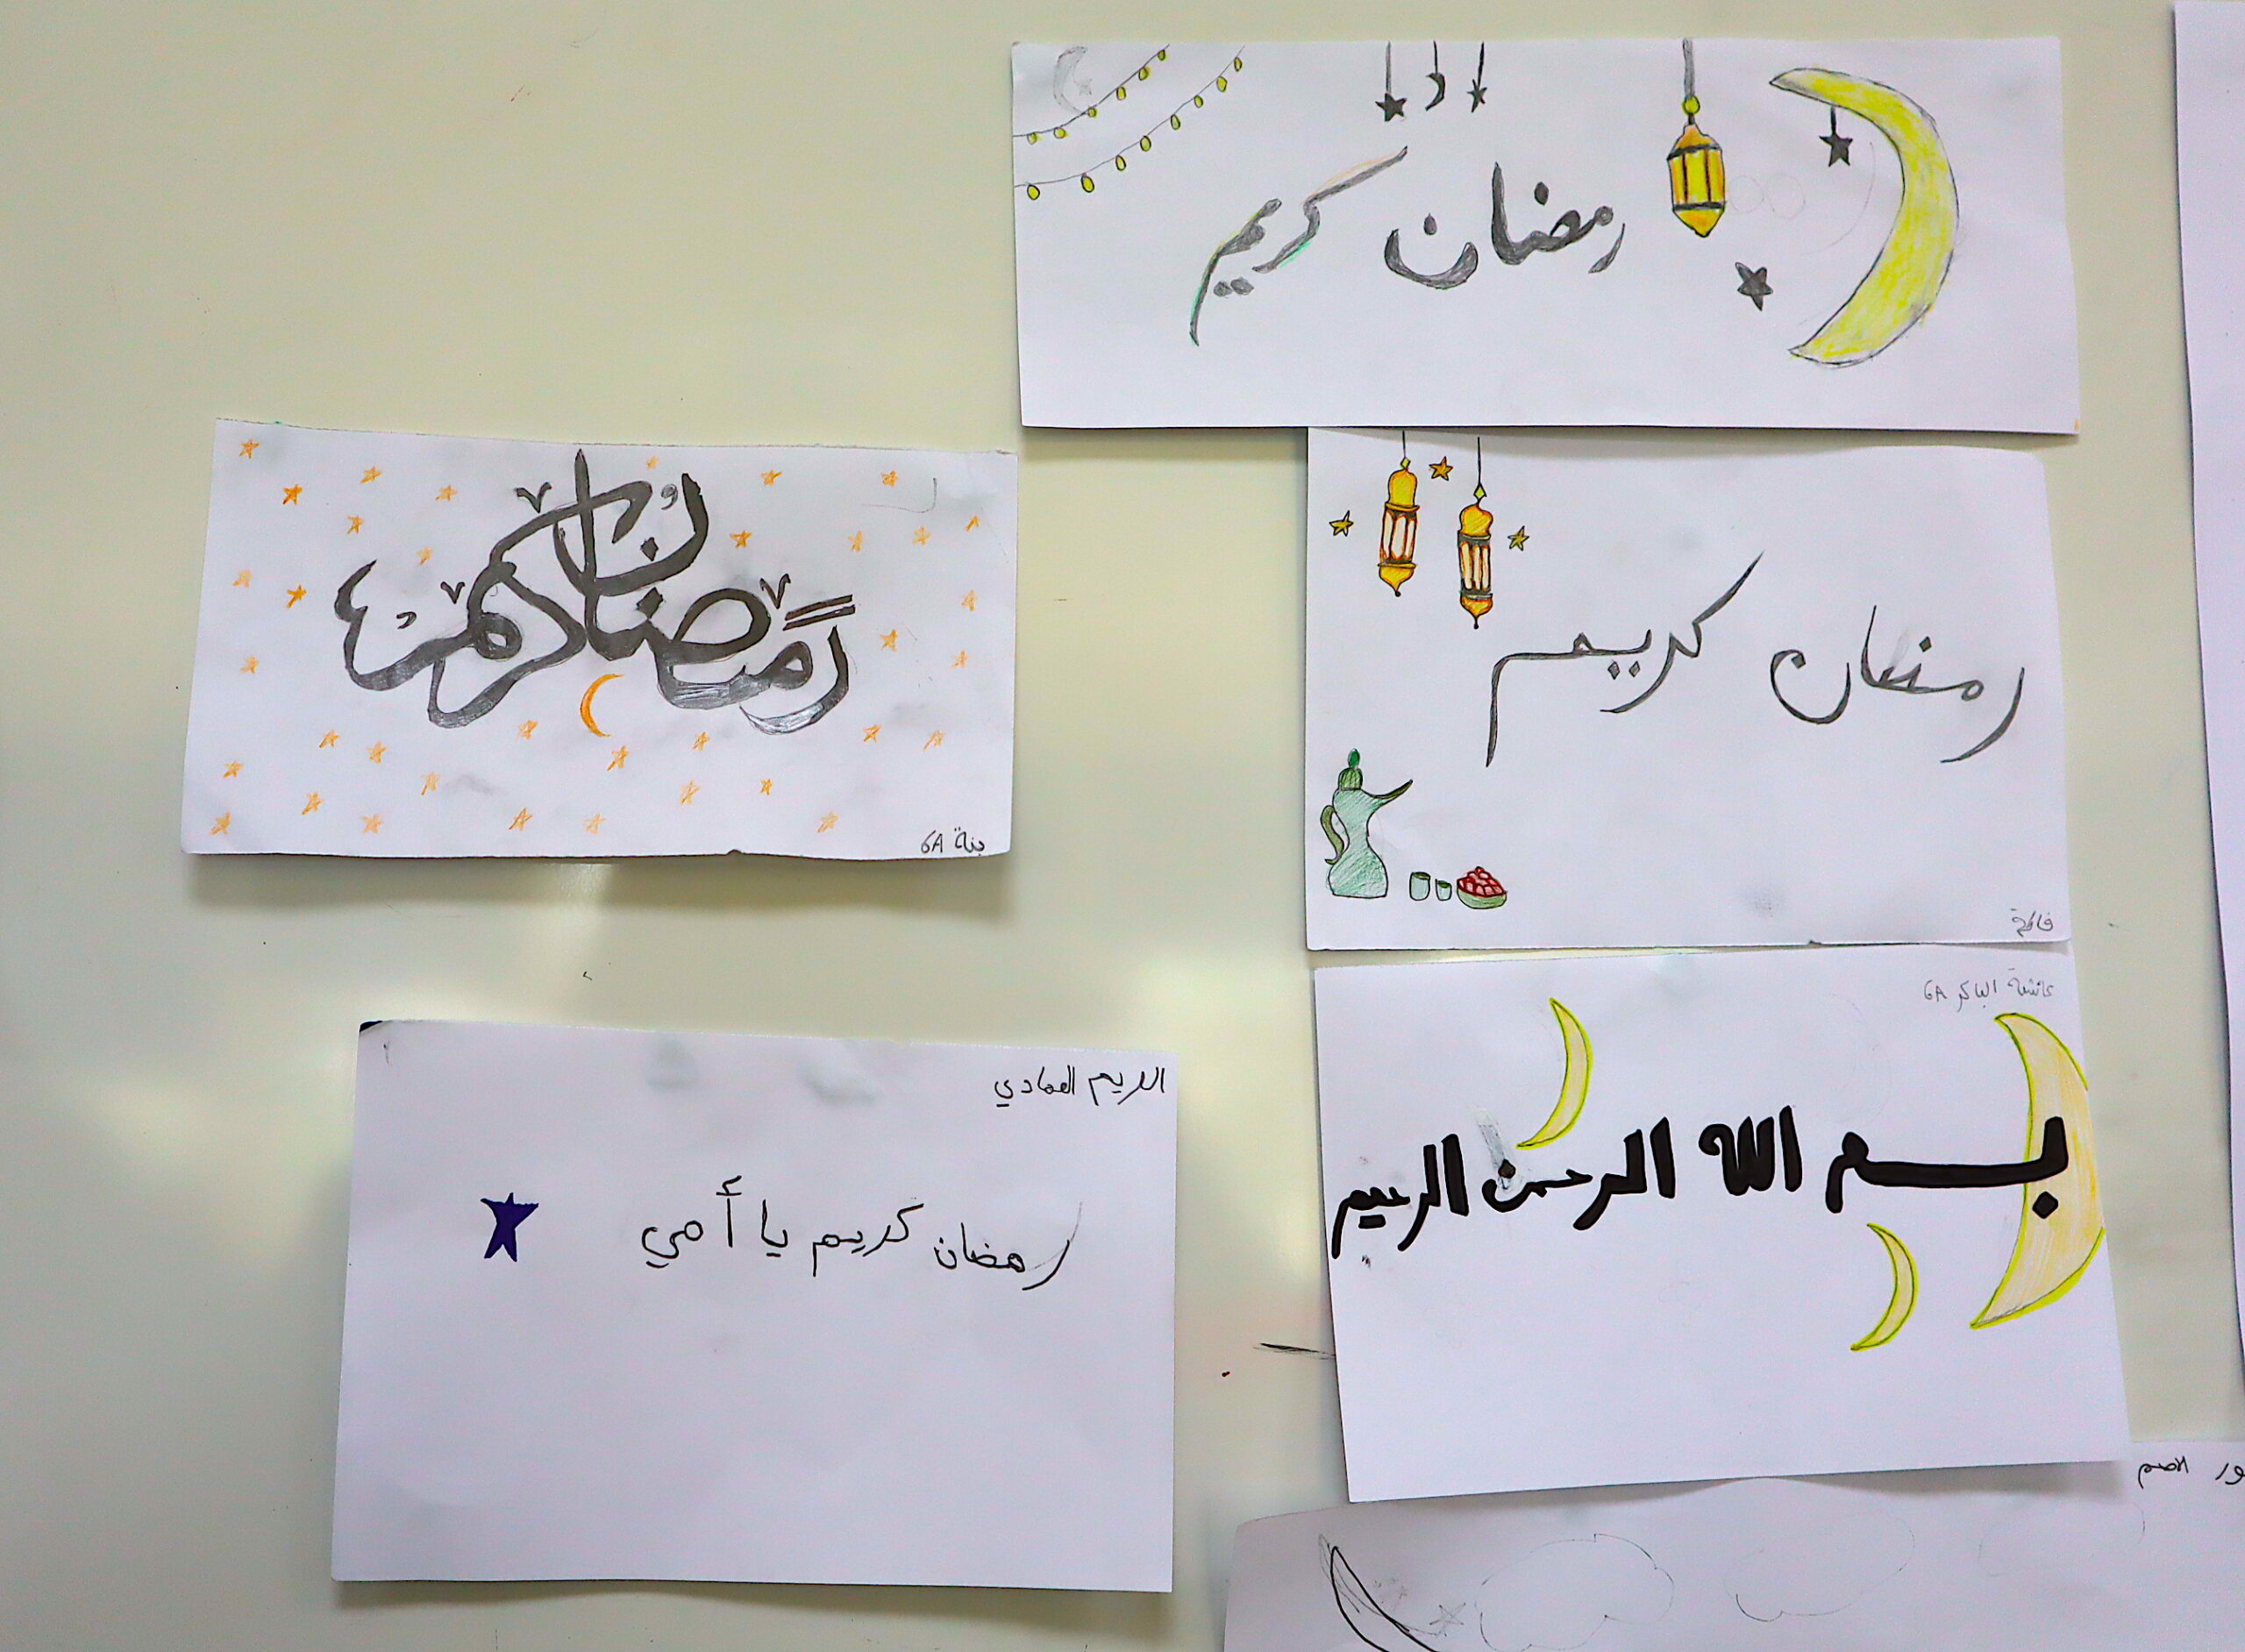 رمضان كريم
رمضان كريم
بنة 6A
رمضان كريم
عائشة الباكر 6A
بسم الله الرحمن الرحيم
الريم العمادي
رمضان كريم يا أمي